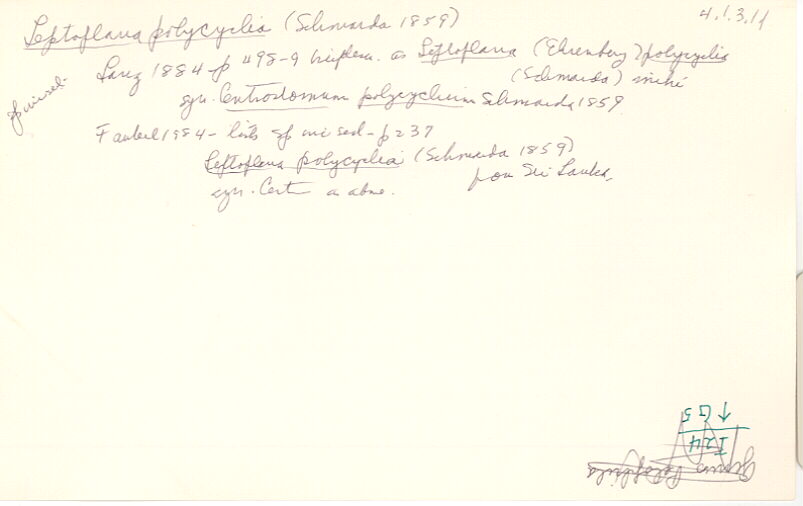 4.1.3.11
Leptoplana polycyclia (Schmarda 1859)
Lang 1884 p 498-9 as Leptoplana (Ehrenberg) polycyclia
(Schmarda) mihi
sp. inc. sed.
syn. Centrostomum polycyclium Schmarda 1859
Faubel 1984 - lists sp inc sed - p 237
Leptoplana polycyclia (Schmarda 1859)
from Sri Lanka,
syn. Cent as above.
↓ G5
I24